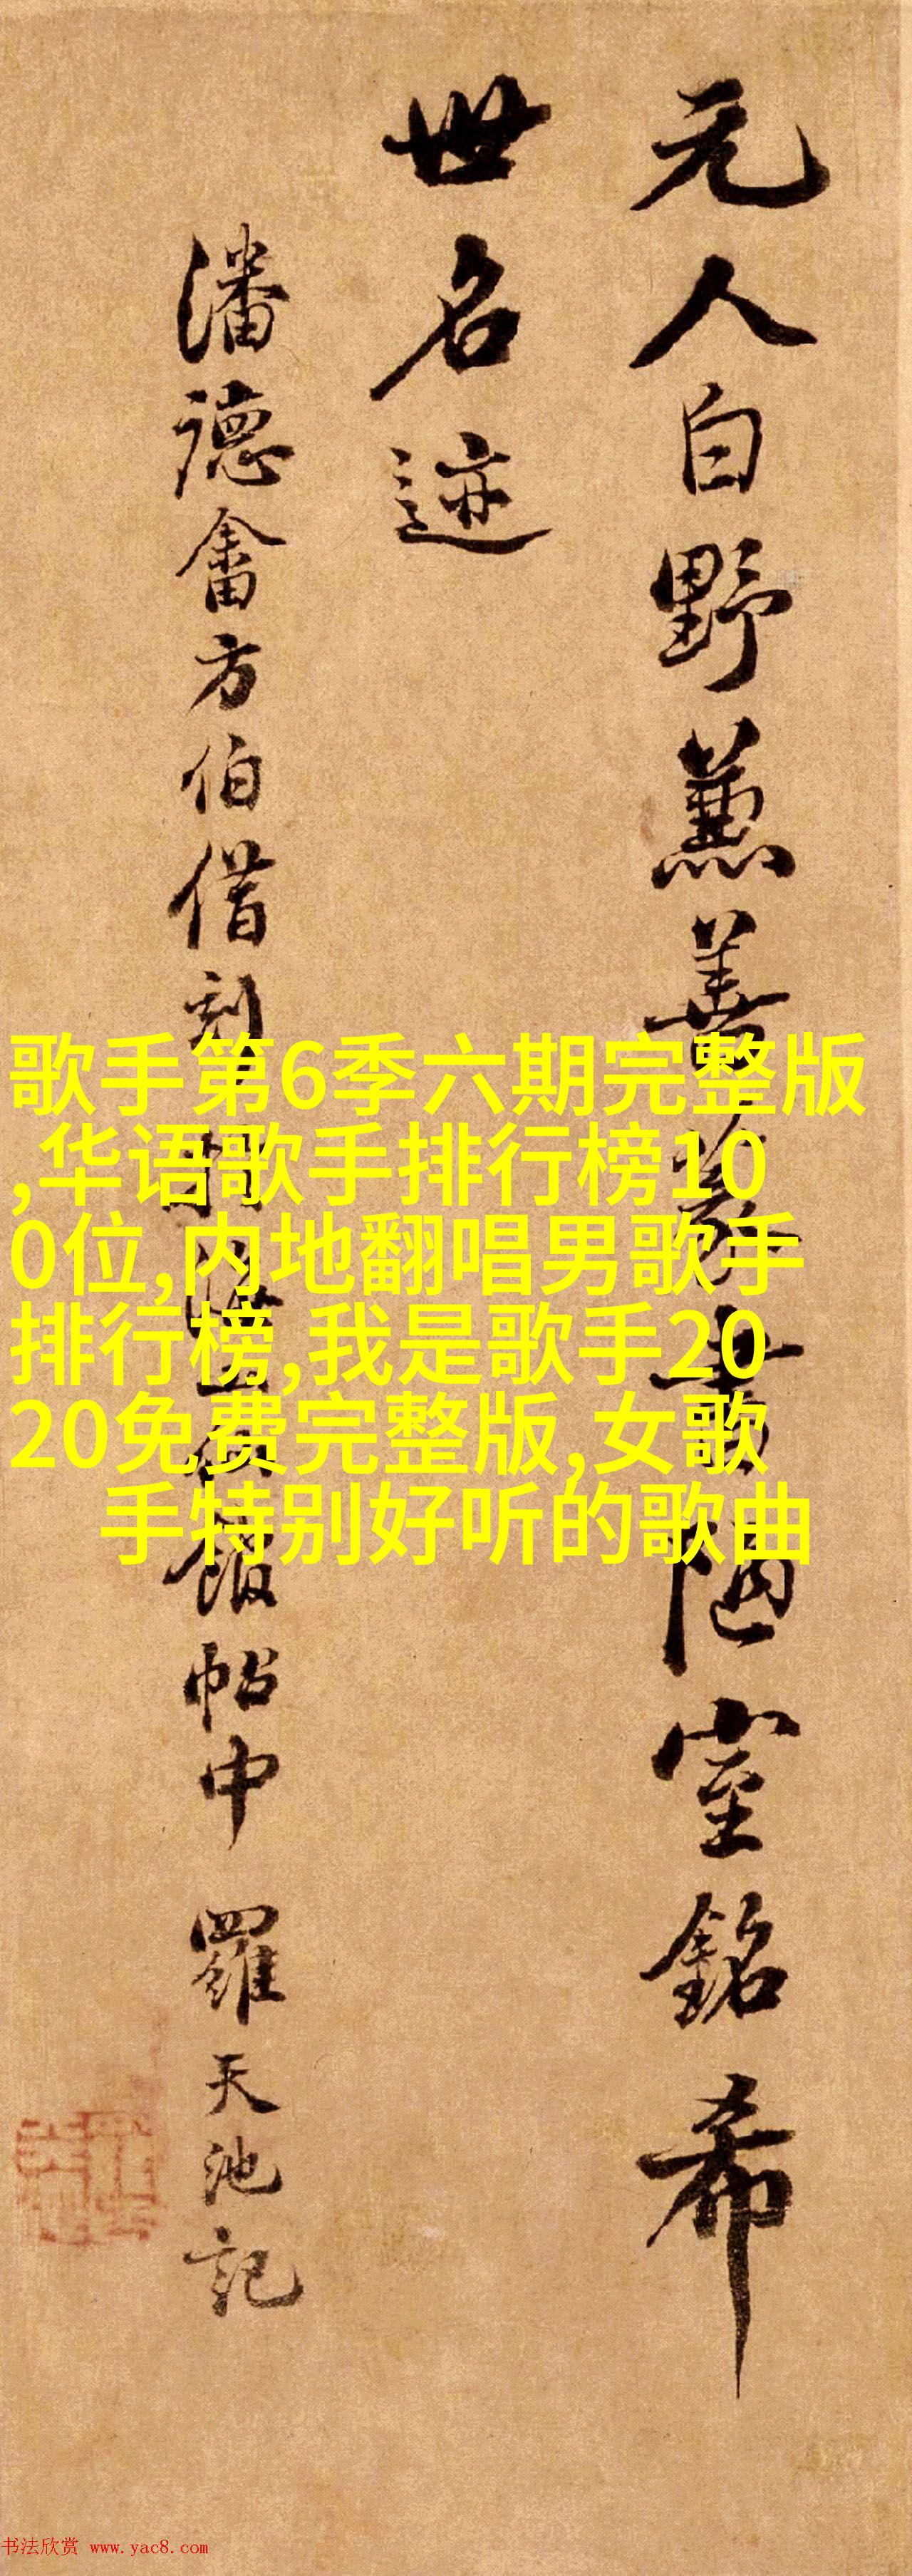 元人白野薰善
陋室銘希
世名迹
潘德畬方伯借刻
館帖中羅天池記
歌手第6季六期完整版
,华语歌手排行榜10
0位,内地翻唱男歌手
排行榜,我是歌手20
20免费完整版,女歌
手特别好听的歌曲
书法欣赏 www.yac8.com